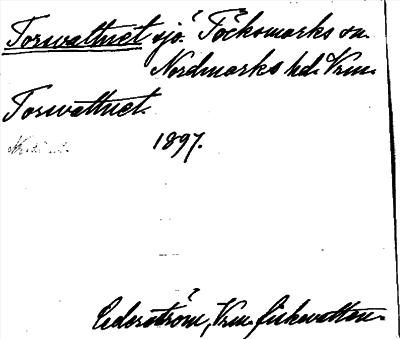 Torvattnet sjö. Töcksmarks sn.
Nordmarks hd. Vrm.
Torvattnet.
1897.
Cederström, Vrm. fiskevatten.